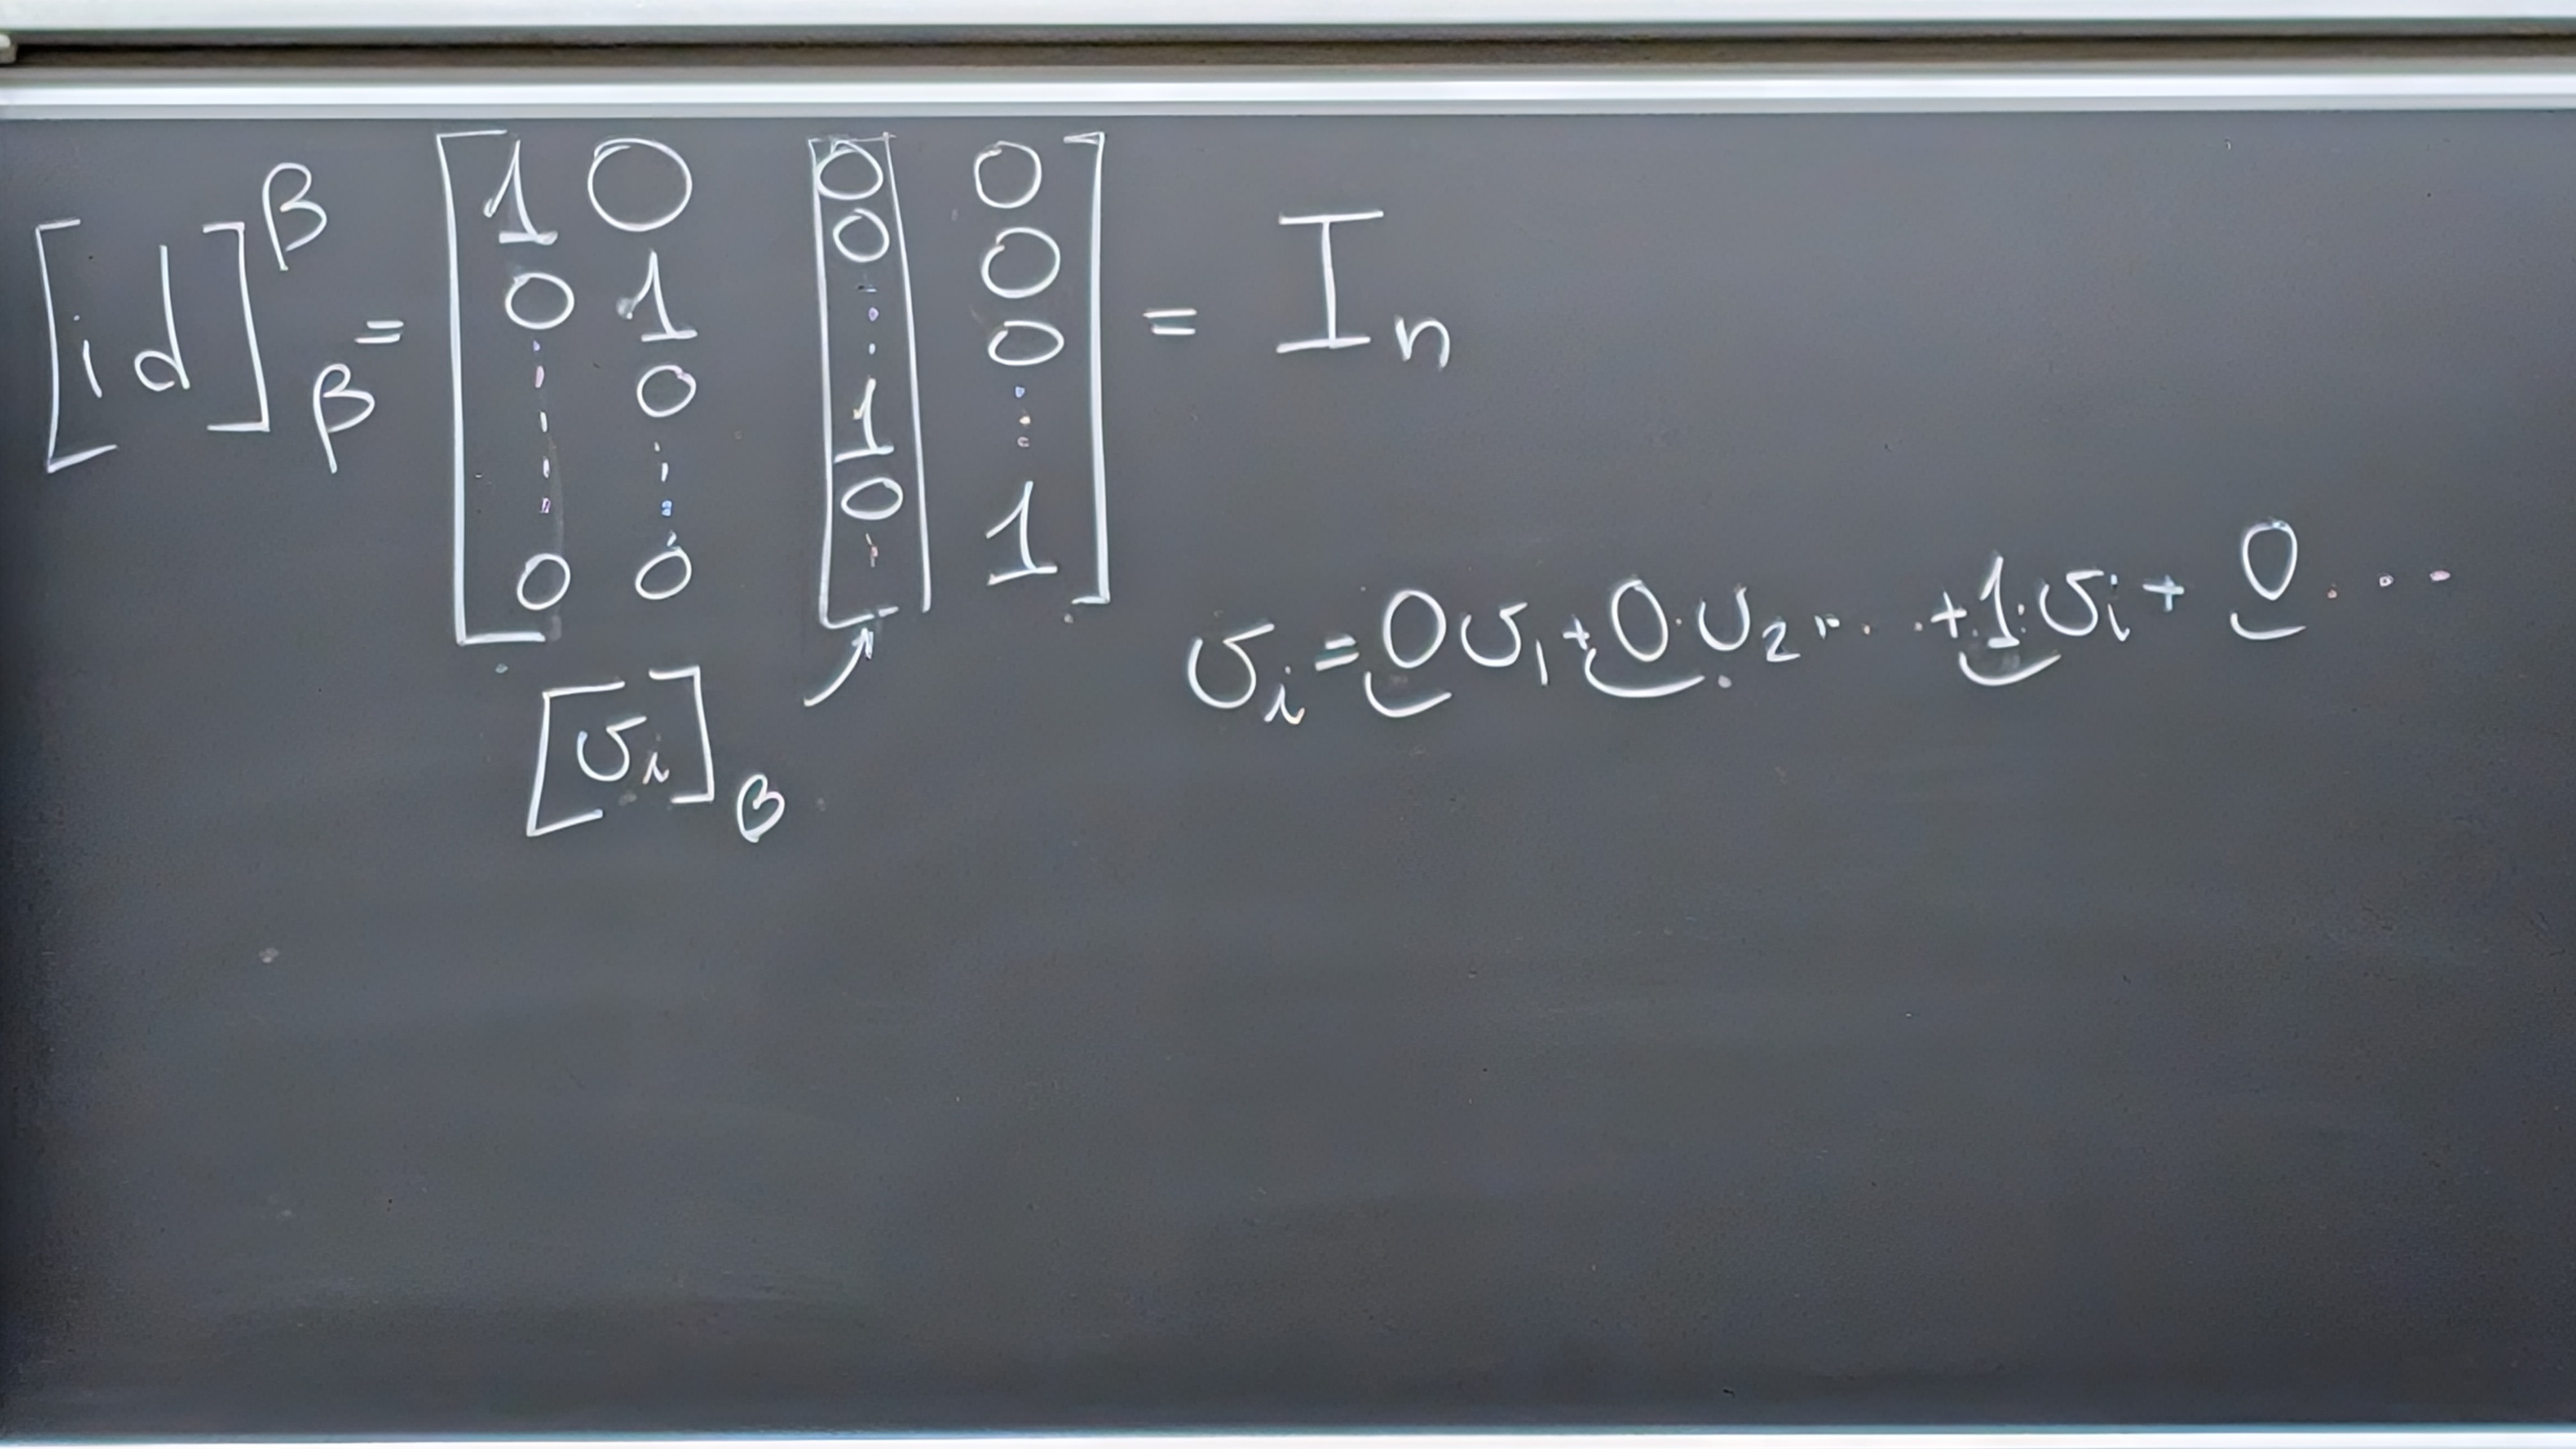 [id]^β_β = [1 0 0 0
0 1 0 0
⋮ 0 ⋮ 0
⋮ ⋮ 1 ⋮
⋮ ⋮ 0 ⋮
0 0 ⋮ 1] = I_n
[v_i]_β
v_i = 0v_1 + 0·v_2 ... + 1·v_i + 0 ...